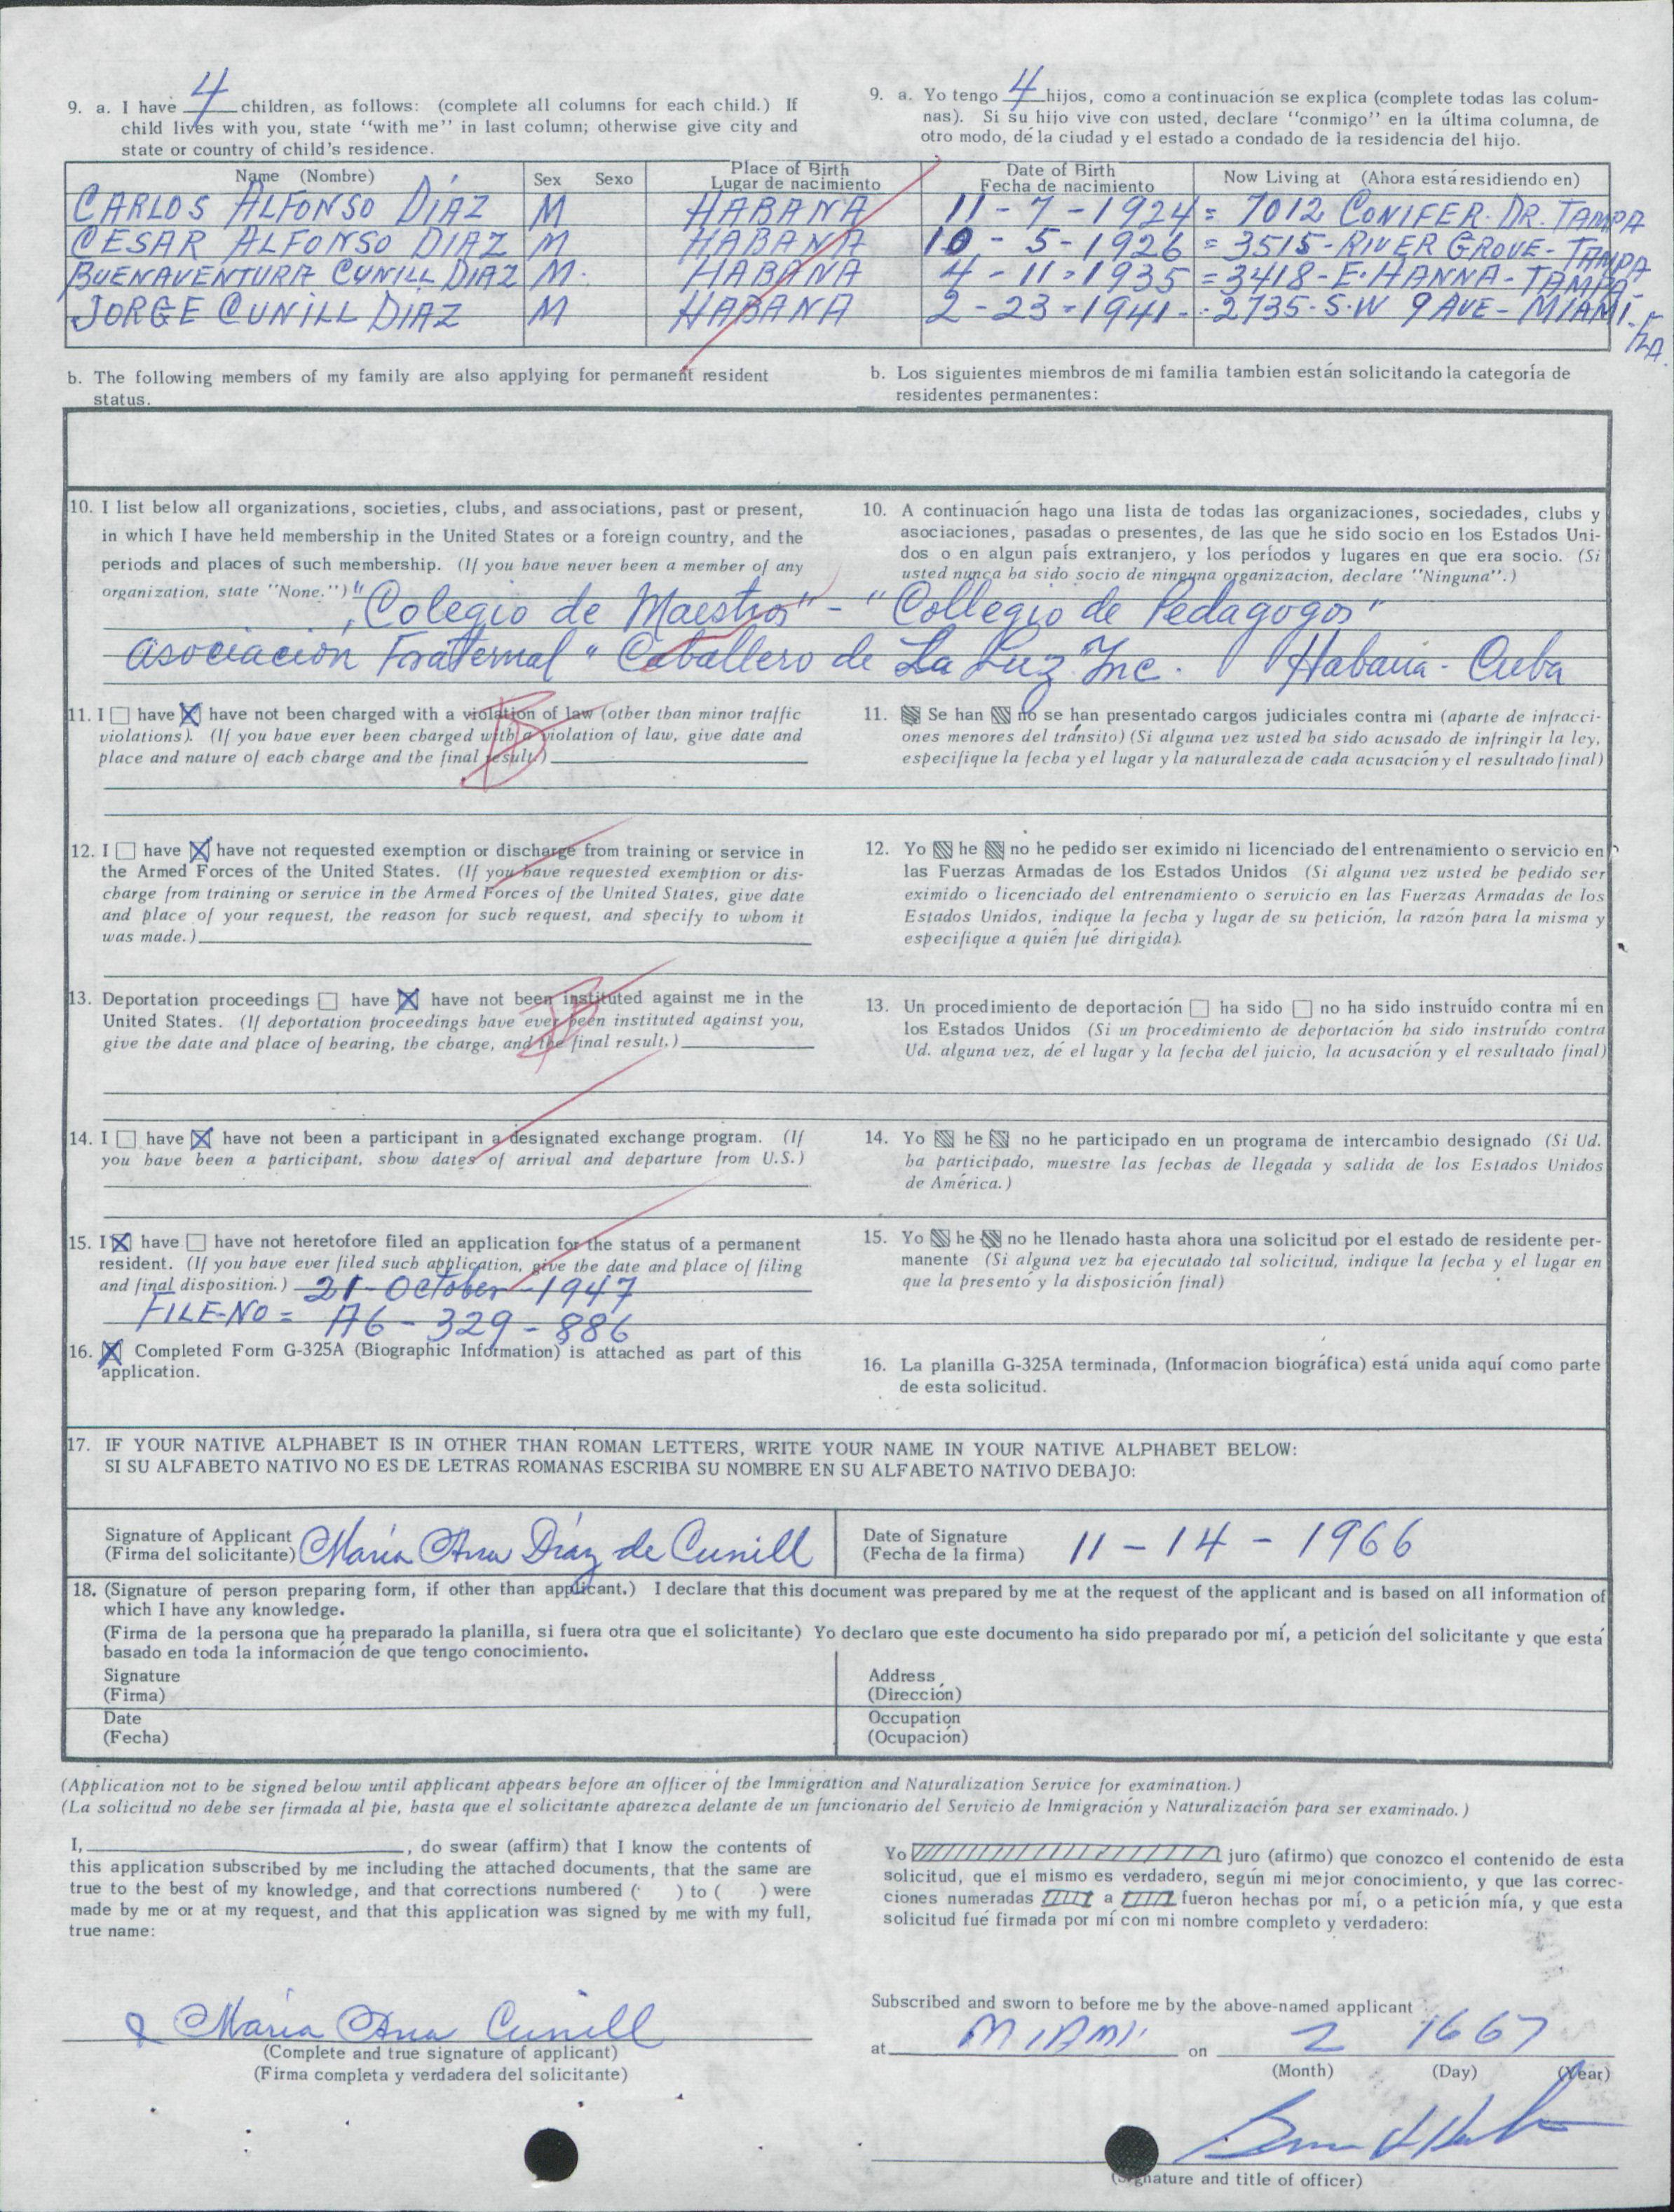 9. a. I have 4 children, as follows: (complete all columns for each child.) If
child lives with you, state "with me" in last column; otherwise give city and
state or country of child's residence.
9. a. Yo tengo 4 hijos, como a continuación se explica (complete todas las colum-
nas). Si su hijo vive con usted, declare "conmigo" en la última columna, de
otro modo, dé la ciudad y el estado a condado de la residencia del hijo.
Name (Nombre) Sex Sexo Place of Birth Lugar de nacimiento Date of Birth Fecha de nacimiento Now Living at (Ahora está residiendo en)
CARLOS ALFONSO DÍAZ M HABANA 11-7-1924 = 7012 CONIFER. DR. TAMPA
CESAR ALFONSO DIAZ M HABANA 10-5-1926 = 3515-RIVER GROVE-TAMPA
BUENAVENTURA CUNILL DIAZ M. HABANA 4-11-1935 = 3418-E. HANNA-TAMPA-
JORGE CUNILL DIAZ M HABANA 2-23-1941-.2735-S.W 9 AVE-MIAMI. FLA.
b. The following members of my family are also applying for permanent resident
status.
b. Los siguientes miembros de mi familia tambien están solicitando la categoría de
residentes permanentes:
10. I list below all organizations, societies, clubs, and associations, past or present,
in which I have held membership in the United States or a foreign country, and the
periods and places of such membership. (If you have never been a member of any
organization, state "None.")
10. A continuación hago una lista de todas las organizaciones, sociedades, clubs y
asociaciones, pasadas o presentes, de las que he sido socio en los Estados Uni-
dos o en algun país extranjero, y los períodos y lugares en que era socio. (Si
usted nunca ha sido socio de ninguna organizacion, declare "Ninguna".)
"Colegio de Maestros" - "Collegio de Pedagogos"
Asociación Fraternal "Caballero de La Luz Inc. Habana - Cuba
11. I have have not been charged with a violation of law (other than minor traffic
violations). (If you have ever been charged with a violation of law, give date and
place and nature of each charge and the final result.)
11. Se han no se han presentado cargos judiciales contra mi (aparte de infracci-
ones menores del tránsito) (Si alguna vez usted ha sido acusado de infringir la ley,
especifique la fecha y el lugar y la naturaleza de cada acusación y el resultado final)
12. I have have not requested exemption or discharge from training or service in
the Armed Forces of the United States. (If you have requested exemption or dis-
charge from training or service in the Armed Forces of the United States, give date
and place of your request, the reason for such request, and specify to whom it
was made.)
12. Yo he no he pedido ser eximido ni licenciado del entrenamiento o servicio en
las Fuerzas Armadas de los Estados Unidos (Si alguna vez usted he pedido ser
eximido o licenciado del entrenamiento o servicio en las Fuerzas Armadas de los
Estados Unidos, indique la fecha y lugar de su petición, la razón para la misma y
especifique a quién fué dirigida).
13. Deportation proceedings have have not been instituted against me in the
United States. (If deportation proceedings have ever been instituted against you,
give the date and place of hearing, the charge, and the final result.)
13. Un procedimiento de deportación ha sido no ha sido instruído contra mí en
los Estados Unidos (Si un procedimiento de deportación ha sido instruído contra
Ud. alguna vez, dé el lugar y la fecha del juicio, la acusación y el resultado final)
14. I have have not been a participant in a designated exchange program. (If
you have been a participant, show dates of arrival and departure from U.S.)
14. Yo he no he participado en un programa de intercambio designado (Si Ud.
ha participado, muestre las fechas de llegada y salida de los Estados Unidos
de América.)
15. I have have not heretofore filed an application for the status of a permanent
resident. (If you have ever filed such application, give the date and place of filing
and final disposition.) 21-October-1947
FILE-NO = A6-329-886
15. Yo he no he llenado hasta ahora una solicitud por el estado de residente per-
manente (Si alguna vez ha ejecutado tal solicitud, indique la fecha y el lugar en
que la presentó y la disposición final)
16. Completed Form G-325A (Biographic Information) is attached as part of this
application.
16. La planilla G-325A terminada, (Informacion biográfica) está unida aquí como parte
de esta solicitud.
17. IF YOUR NATIVE ALPHABET IS IN OTHER THAN ROMAN LETTERS, WRITE YOUR NAME IN YOUR NATIVE ALPHABET BELOW:
SI SU ALFABETO NATIVO NO ES DE LETRAS ROMANAS ESCRIBA SU NOMBRE EN SU ALFABETO NATIVO DEBAJO:
Signature of Applicant
(Firma del solicitante) María Ana Díaz de Cunill
Date of Signature
(Fecha de la firma) 11-14-1966
18. (Signature of person preparing form, if other than applicant.) I declare that this document was prepared by me at the request of the applicant and is based on all information of
which I have any knowledge.
(Firma de la persona que ha preparado la planilla, si fuera otra que el solicitante) Yo declaro que este documento ha sido preparado por mí, a petición del solicitante y que está
basado en toda la información de que tengo conocimiento.
Signature
(Firma)
Address
(Dirección)
Date
(Fecha)
Occupation
(Ocupación)
(Application not to be signed below until applicant appears before an officer of the Immigration and Naturalization Service for examination.)
(La solicitud no debe ser firmada al pie, hasta que el solicitante aparezca delante de un funcionario del Servicio de Inmigración y Naturalización para ser examinado.)
I, , do swear (affirm) that I know the contents of
this application subscribed by me including the attached documents, that the same are
true to the best of my knowledge, and that corrections numbered ( ) to ( ) were
made by me or at my request, and that this application was signed by me with my full,
true name:
Yo juro (afirmo) que conozco el contenido de esta
solicitud, que el mismo es verdadero, según mi mejor conocimiento, y que las correc-
ciones numeradas a fueron hechas por mí, o a petición mía, y que esta
solicitud fué firmada por mí con mi nombre completo y verdadero:
María Ana Cunill
(Complete and true signature of applicant)
(Firma completa y verdadera del solicitante)
Subscribed and sworn to before me by the above-named applicant
at MIAMI on 2 16 67
(Month) (Day) (Year)
(Signature and title of officer)